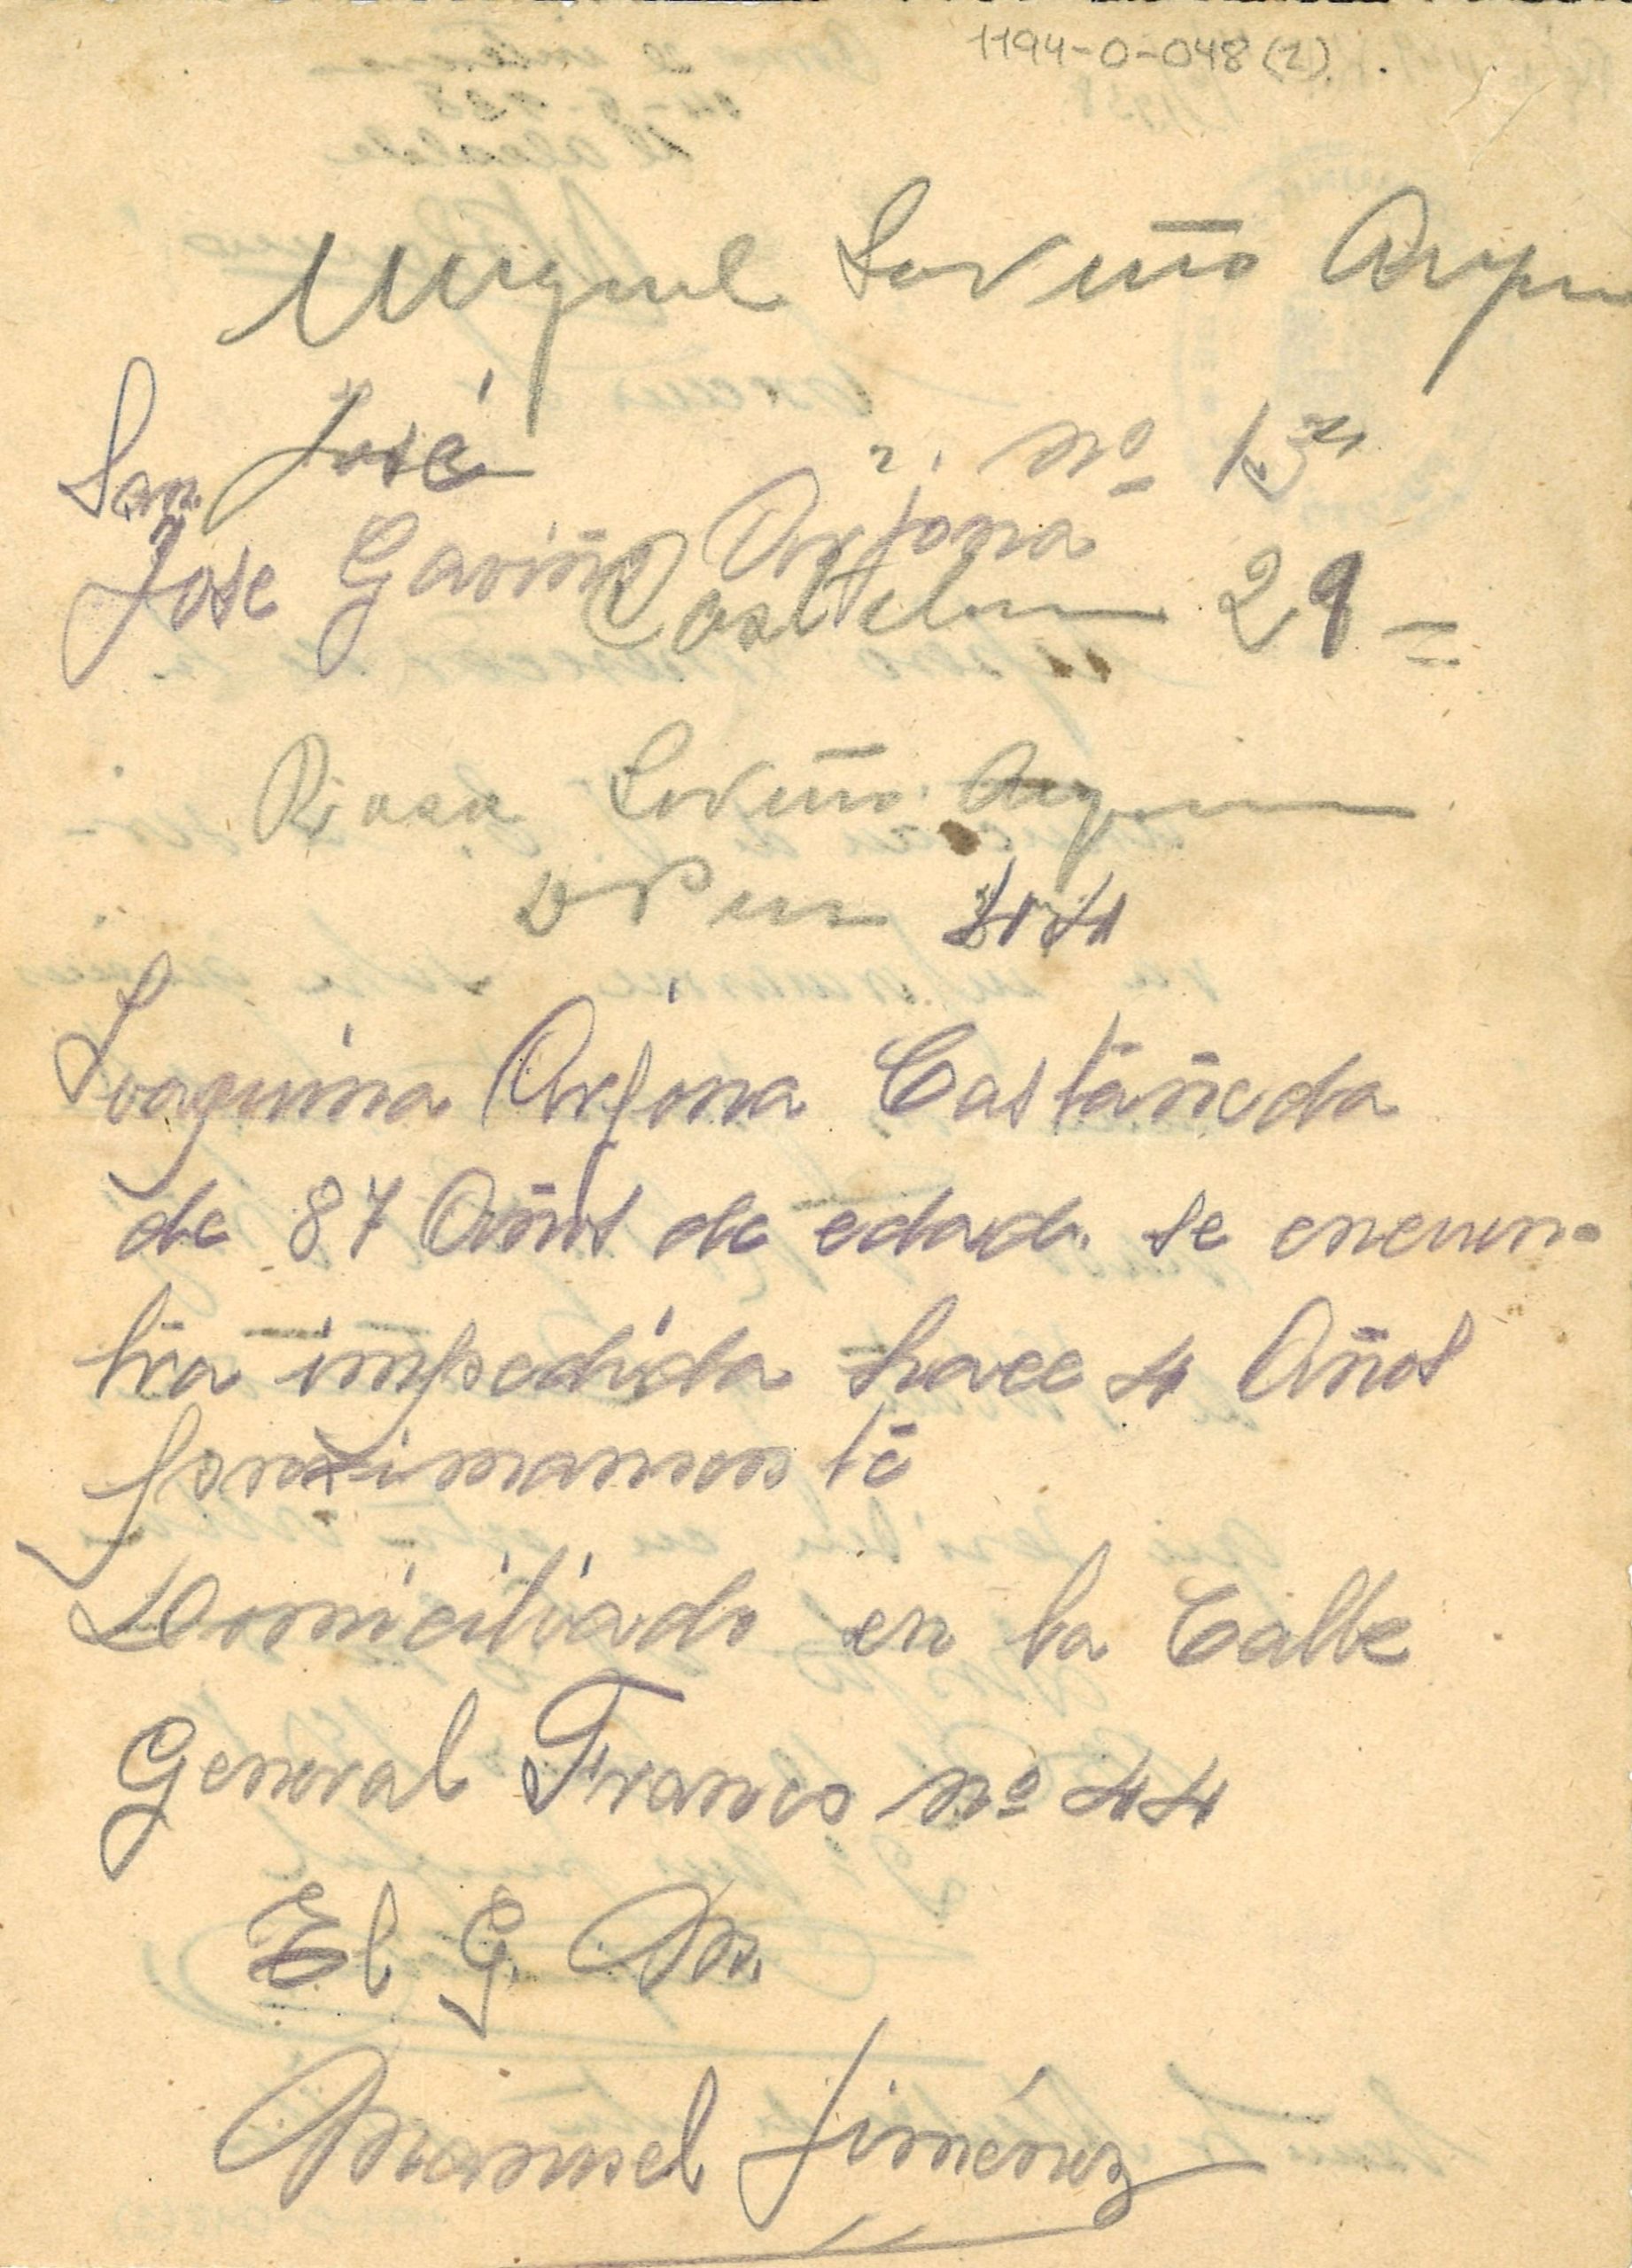 1194-0-048(2)
Miguel Gaviño Arjona
San José nº 13
Jose Gaviño Arjona
Castelar 29 =
Rosa Gaviño Arjona
44
Joaquina Arjona Castañeda
de 87 Años de edad. se encuen-
tra impedida hace 4 Años
Domiciliado en la Calle
General Franco nº 44
El G. M.
Manuel Jiménez